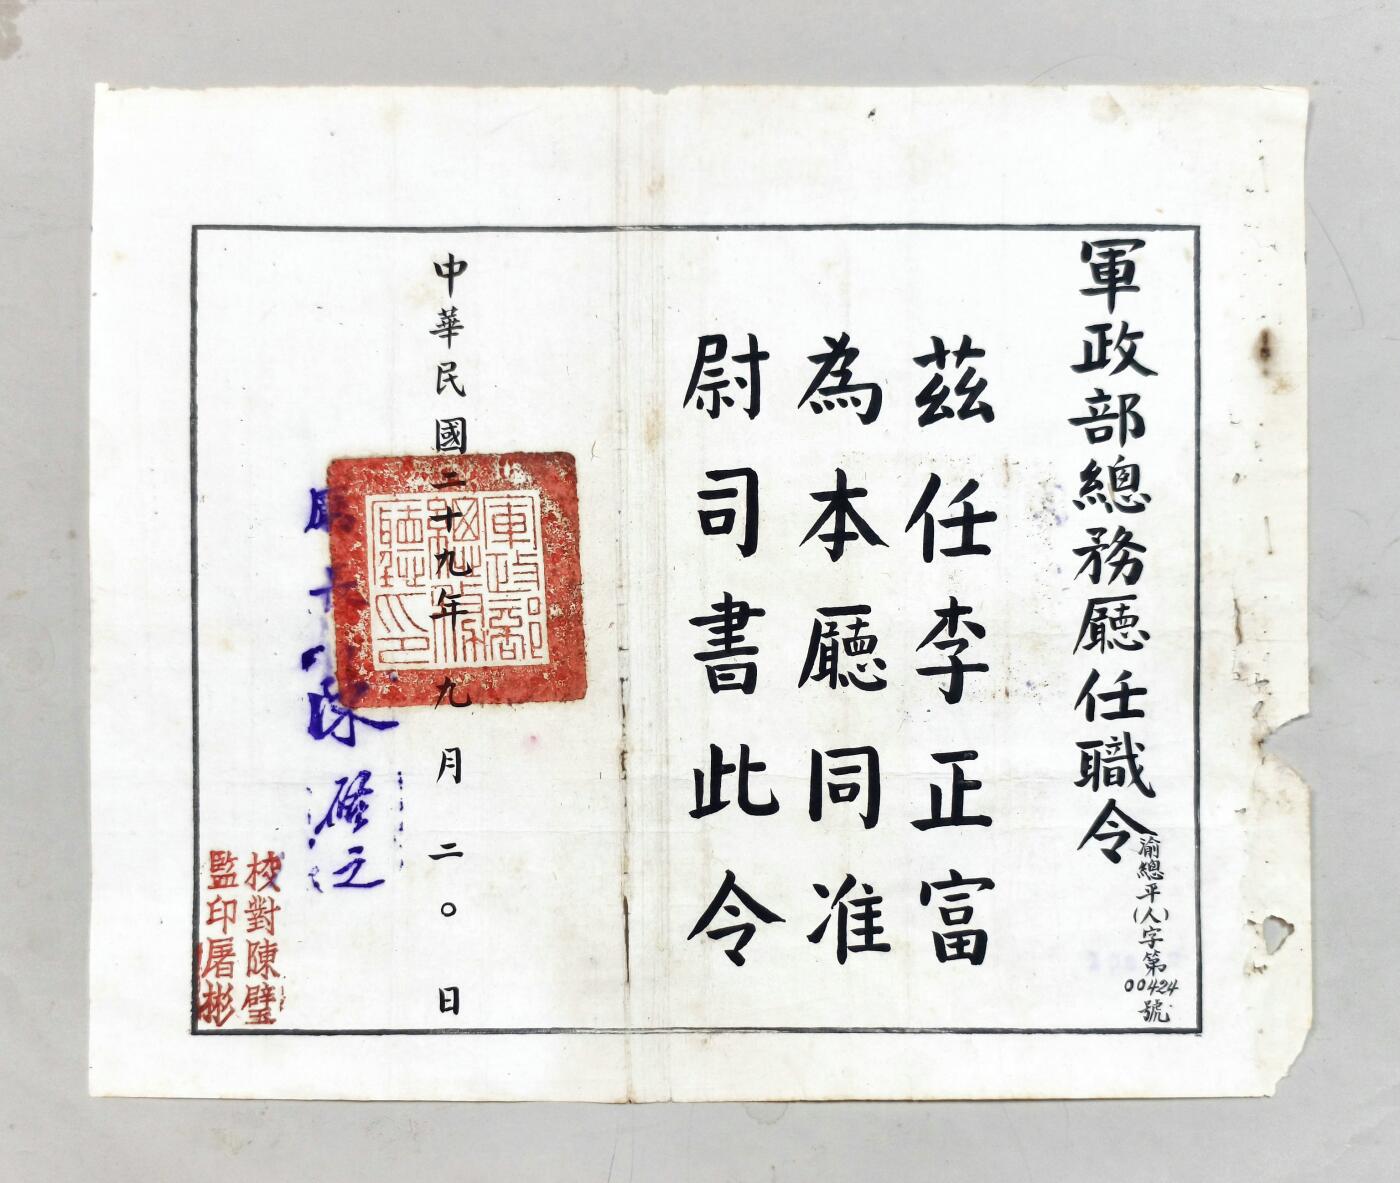 軍政部總務廳任職令
渝總平(人)字第00424號
茲任李正富
為本廳同准
尉司書此令
中華民國二十九年九月二〇日
軍政部
總務
廳印
廳
陳啓之
校對陳璧
監印屠彬